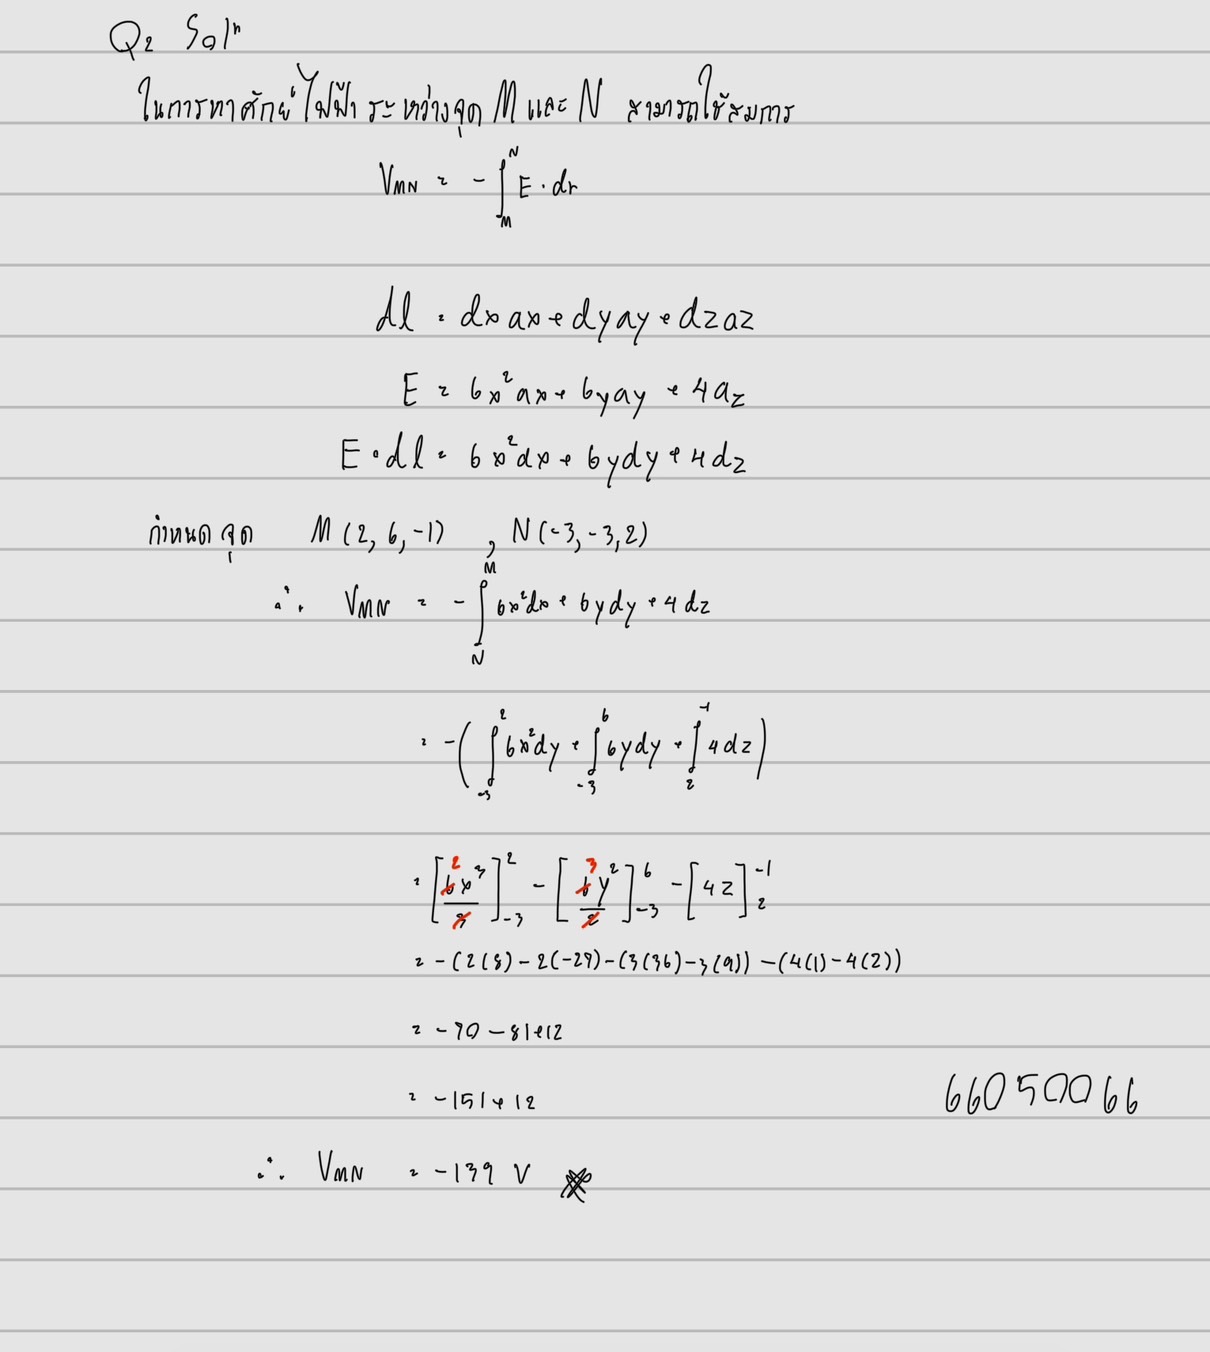 Q2 Solⁿ
ในการหาศักย์ไฟฟ้าระหว่างจุด M และ N สามารถใช้สมการ
V_MN = -∫_M^N E · dr
dl = dx ax + dy ay + dz az
E = 6x² ax + 6y ay + 4 az
E · dl = 6x² dx + 6y dy + 4 dz
กำหนดจุด M (2, 6, -1) , N (-3, -3, 2)
∴ V_MN = -∫_N^M 6x² dx + 6y dy + 4 dz
= -( ∫_{-3}^{2} 6x² dy + ∫_{-3}^{6} 6y dy + ∫_{2}^{-1} 4 dz )
= [2 6x³/3]_{-3}^{2} - [3 6y²/2]_{-3}^{6} - [4z]_{2}^{-1}
= -(2(8) - 2(-27) - (3(36) - 3(9)) - (4(1) - 4(2))
= -70 - 81 + 12
= -151 + 12
66050066
∴ V_MN = -139 V